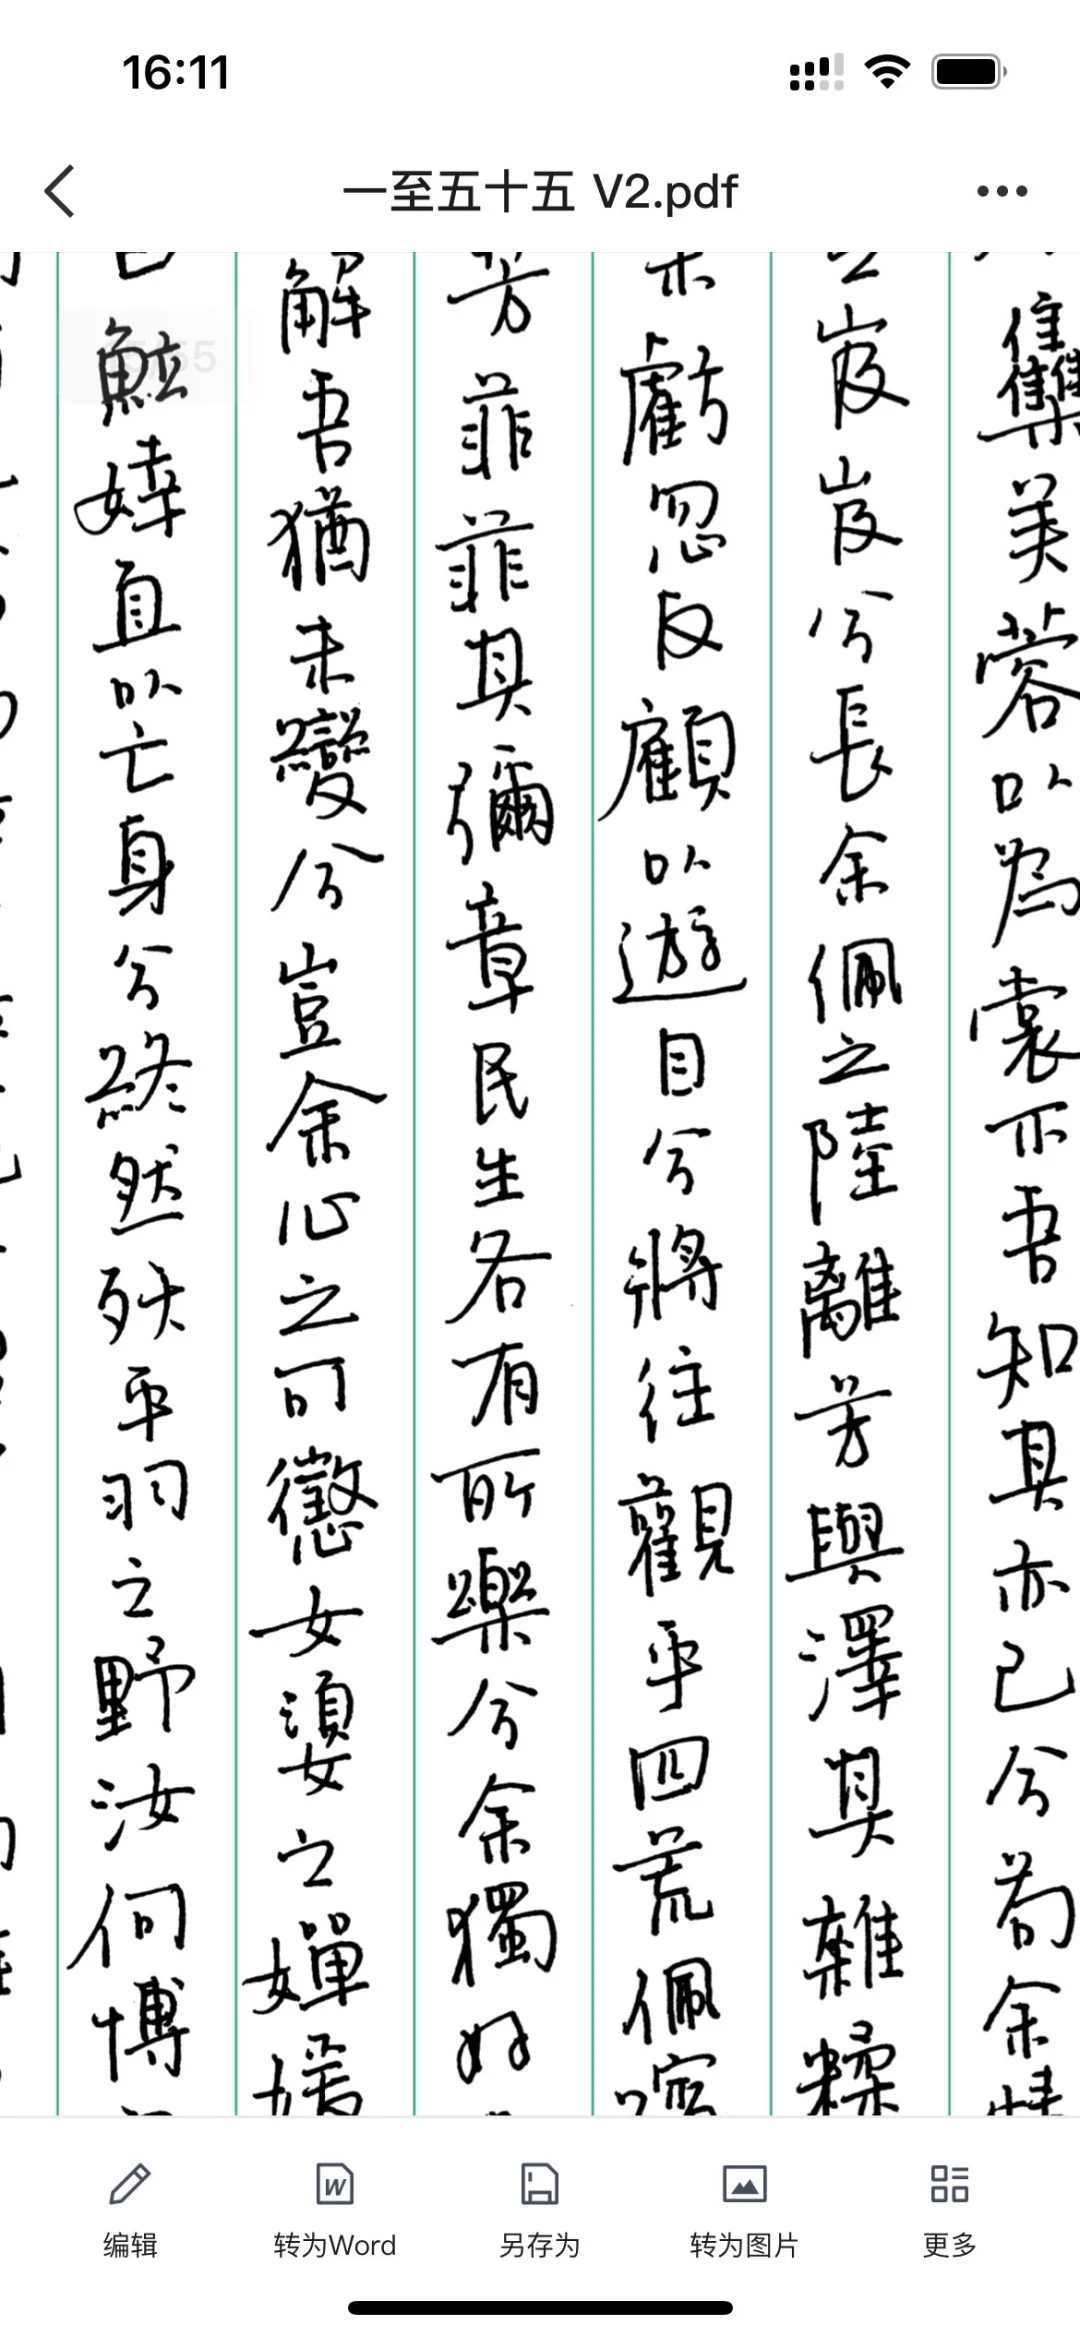 16:11
一至五十五 V2.pdf
雧芙蓉以為裳不吾知其亦已兮苟余情
之岌岌兮長余佩之陸離芳與澤其雜糅
未虧忽反顧以遊目兮將往觀乎四荒佩繽
芳菲菲其彌章民生各有所樂兮余獨好
解吾猶未變兮豈余心之可懲女嬃之嬋媛
曰鮌婞直以亡身兮終然殀乎羽之野汝何博
编辑
转为Word
另存为
转为图片
更多